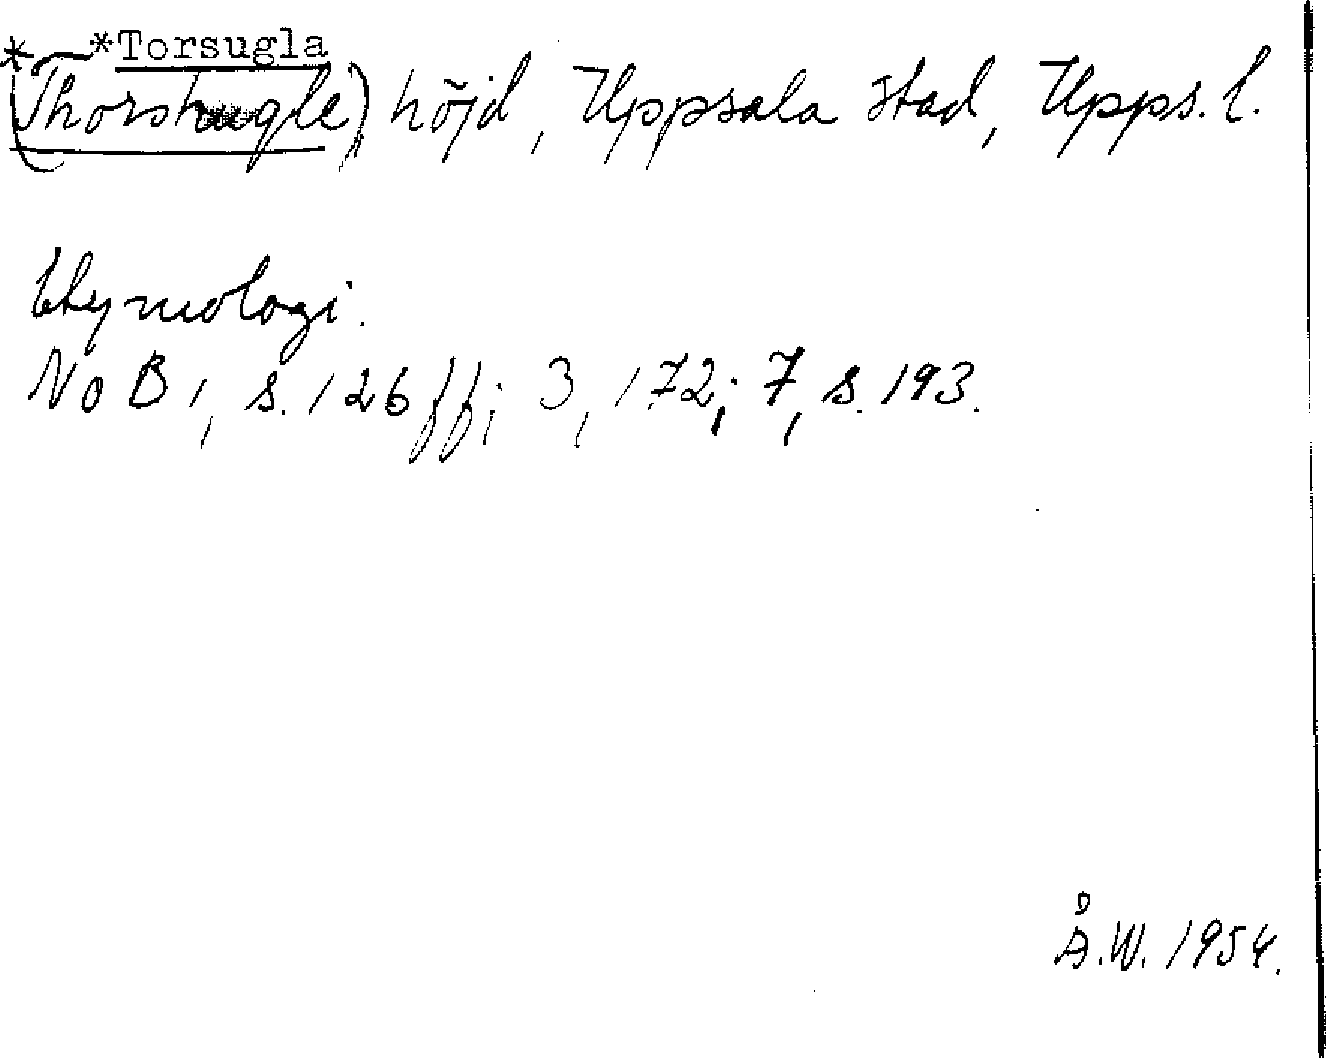 *Torsugla
*(Thorshugle) höjd, Uppsala stad, Upps. l.
Etymologi.
NoB 1, s. 126 ff; 3, 172; 7, s. 193.
Å.W. 1954.